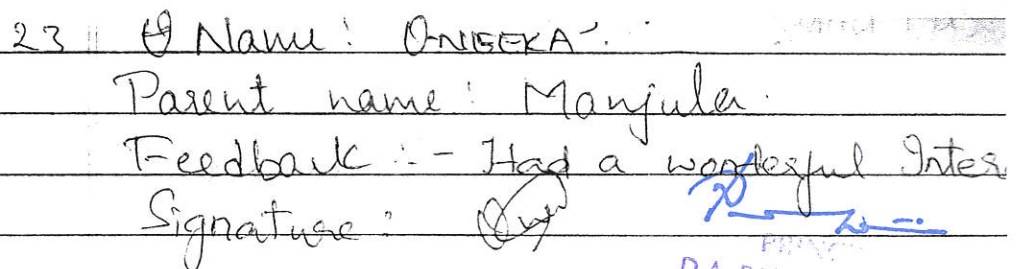 23 Name: ONEEKA.
Parent name: Manjula.
Feedback :- Had a wonderful Inter
Signature: